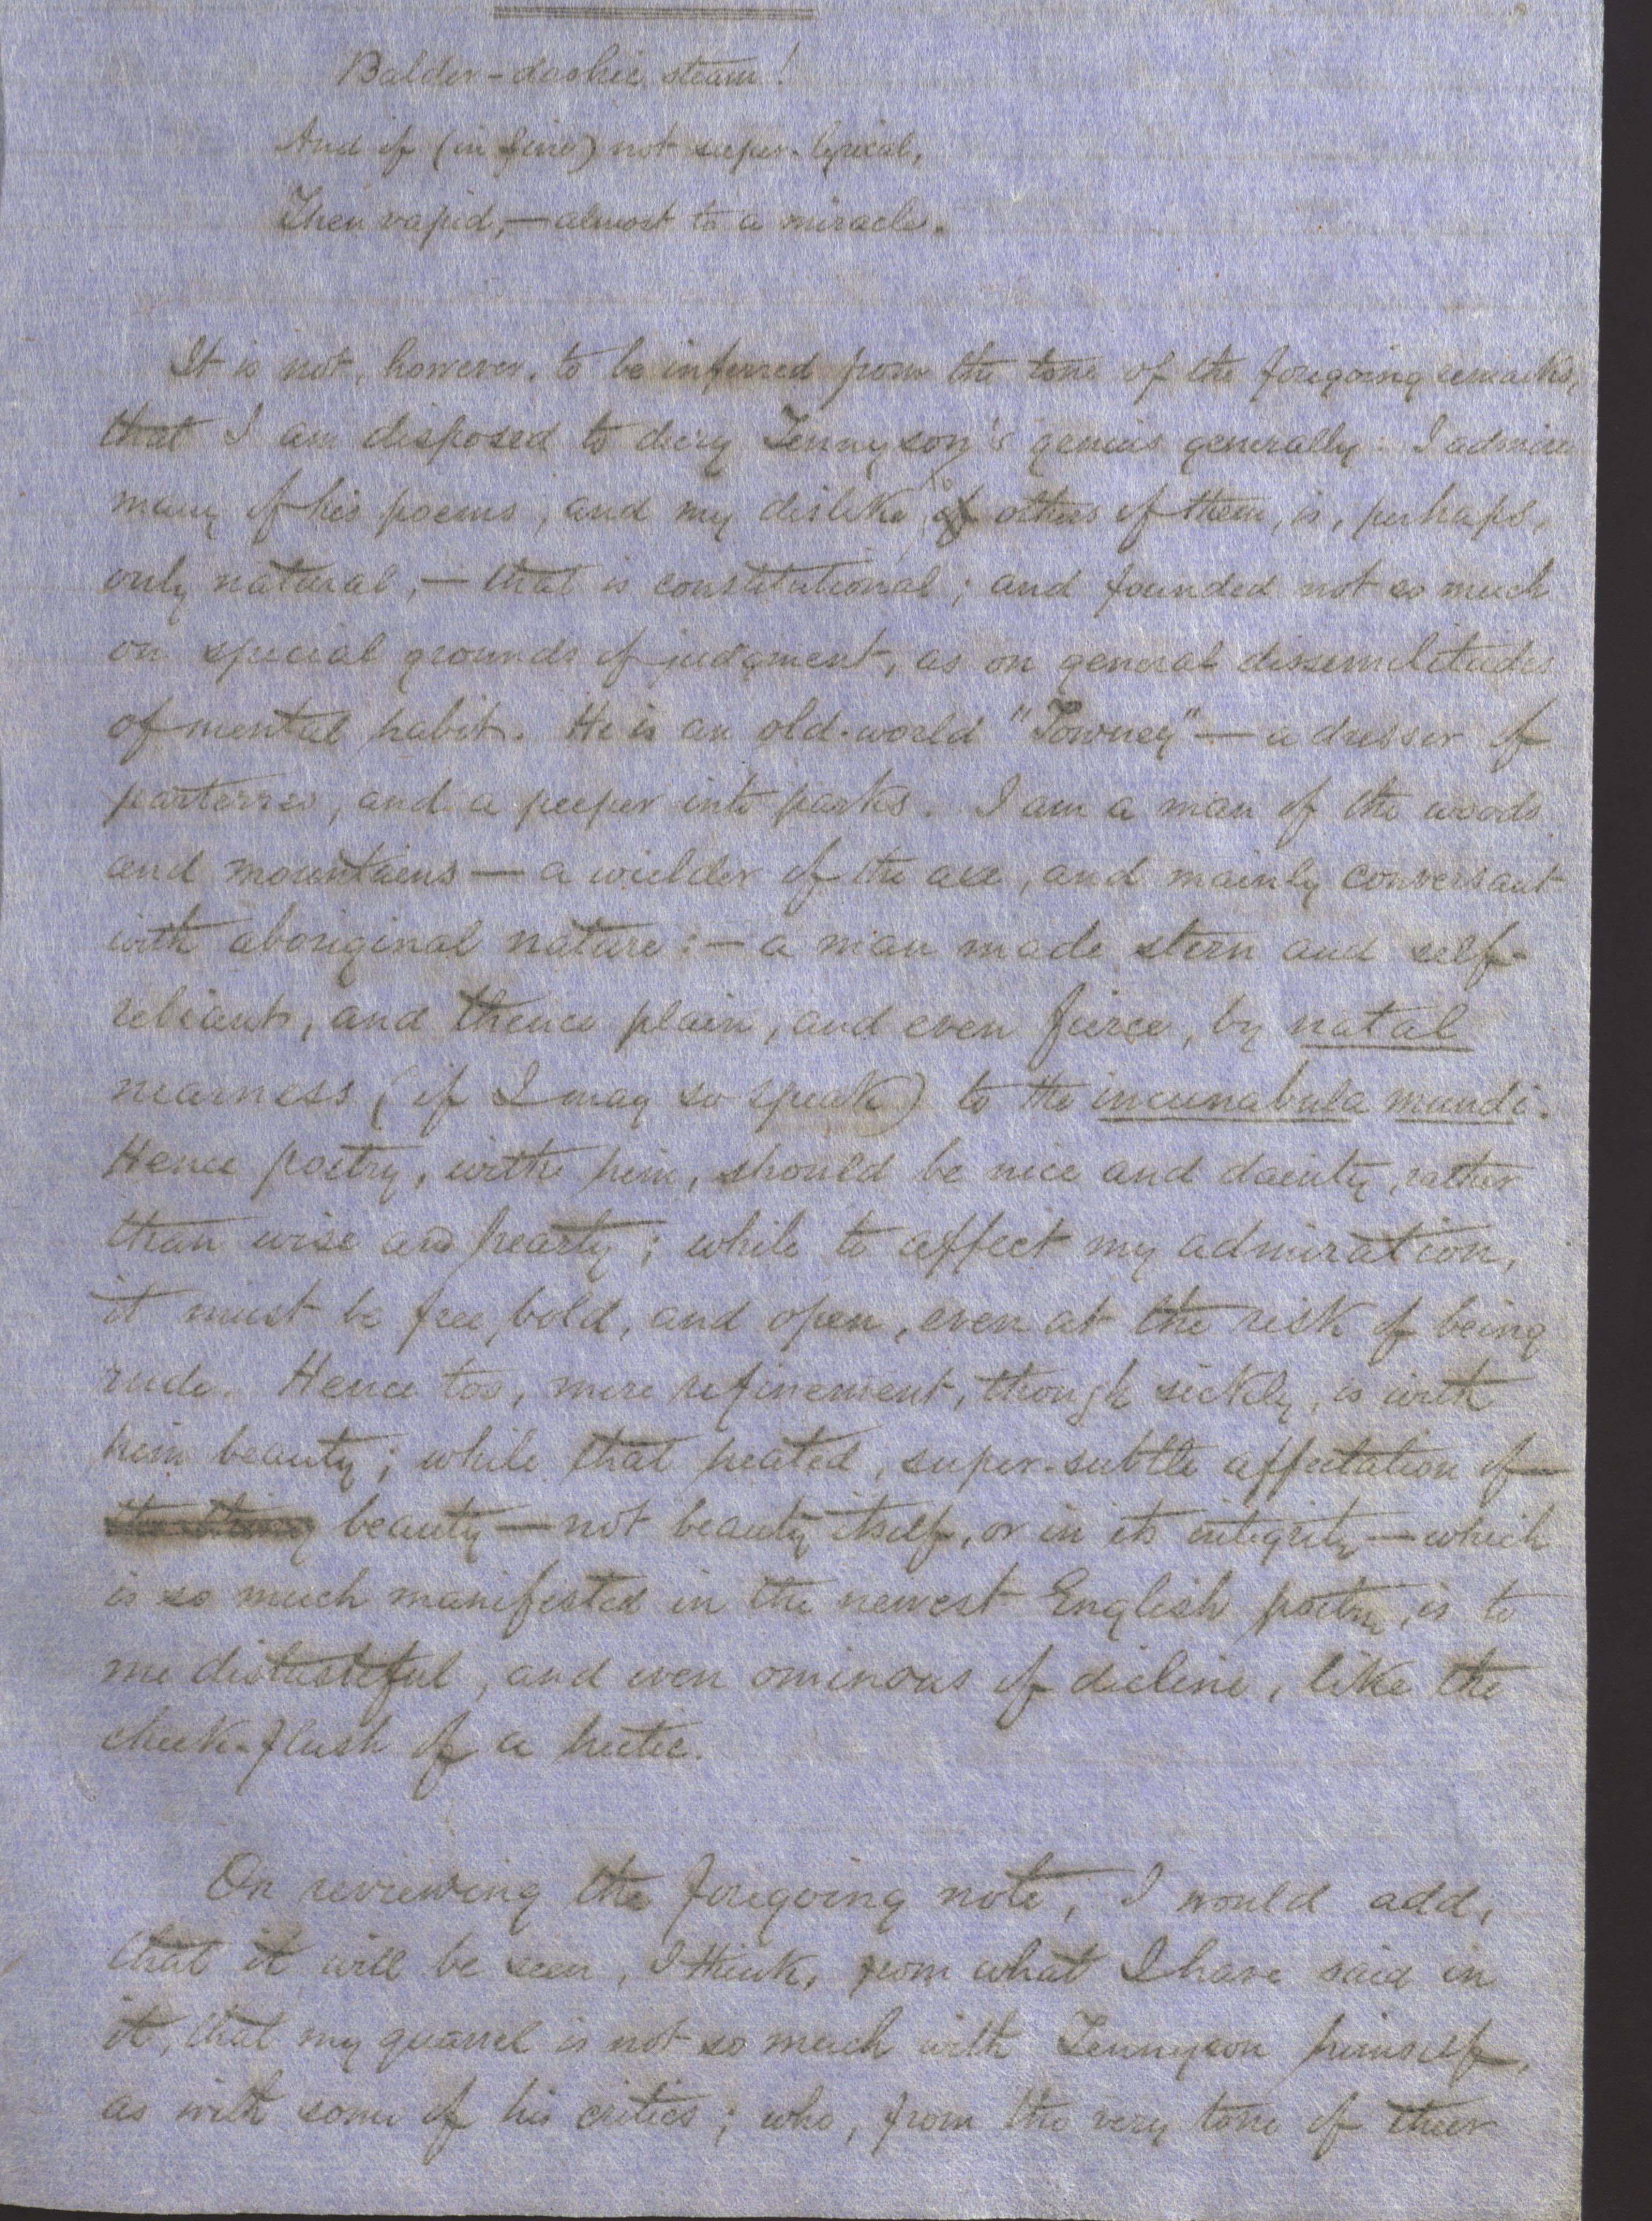 Balder-dashie steam!
And if (in fine) not super-lyrical,
Then vapid,—almost to a miracle.
It is not, however, to be inferred from the tone of the foregoing remarks,
that I am disposed to decry Tennyson's genius generally. I admire
many of his poems, and my dislike to others of them, is, perhaps,
only natural,—that is constitutional; and founded not so much
on special grounds of judgment, as on general dissimilitudes
of mental habit. He is an old-world "Towney"—a dresser of
parterres, and a peeper into parks. I am a man of the woods
and mountains—a wielder of the axe, and mainly conversant
with aboriginal nature:—a man made stern and self-
reliant, and thence plain, and even fierce, by natal
nearness (if I may so speak) to the incunabula mundi.
Hence poetry, with him, should be nice and dainty, rather
than wise and hearty; while to affect my admiration,
it must be free, bold, and open, even at the risk of being
rude. Hence too, mere refinement, though sickly, is with
him beauty; while that heated, super-subtle affectation of
beauty—not beauty itself, or in its integrity—which
is so much manifested in the newest English poetry, is to
me distasteful, and even ominous of decline, like the
cheek-flush of a hectic.
On reviewing the foregoing note, I would add,
that it will be seen, I think, from what I have said in
it, that my quarrel is not so much with Tennyson himself,
as with some of his critics; who, from the very tone of their